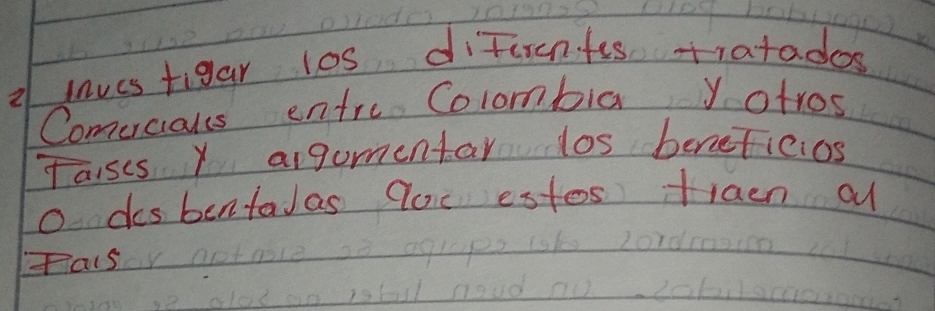 2 investigar los diferentes tratados
Comerciales entre Colombia y otros
Paises y argumentar los beneficios
o desbentajas que estos traen al
Pais